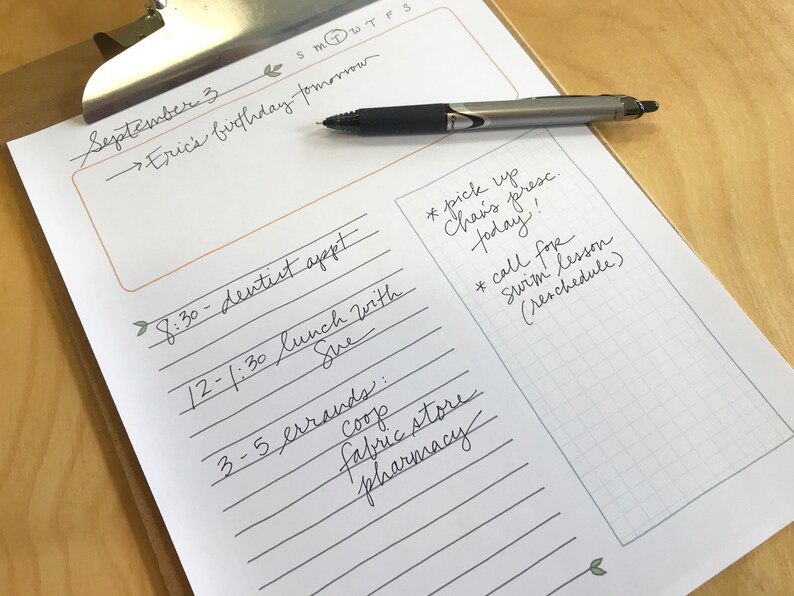 S M T W T F S
September 3
→ Eric's birthday tomorrow
8:30 - dentist appt
12-1:30 lunch with
Sue
3-5 errands:
coop
fabric store
pharmacy
* pick up
Chan's presc.
today!
* call for
swim lesson
(reschedule)